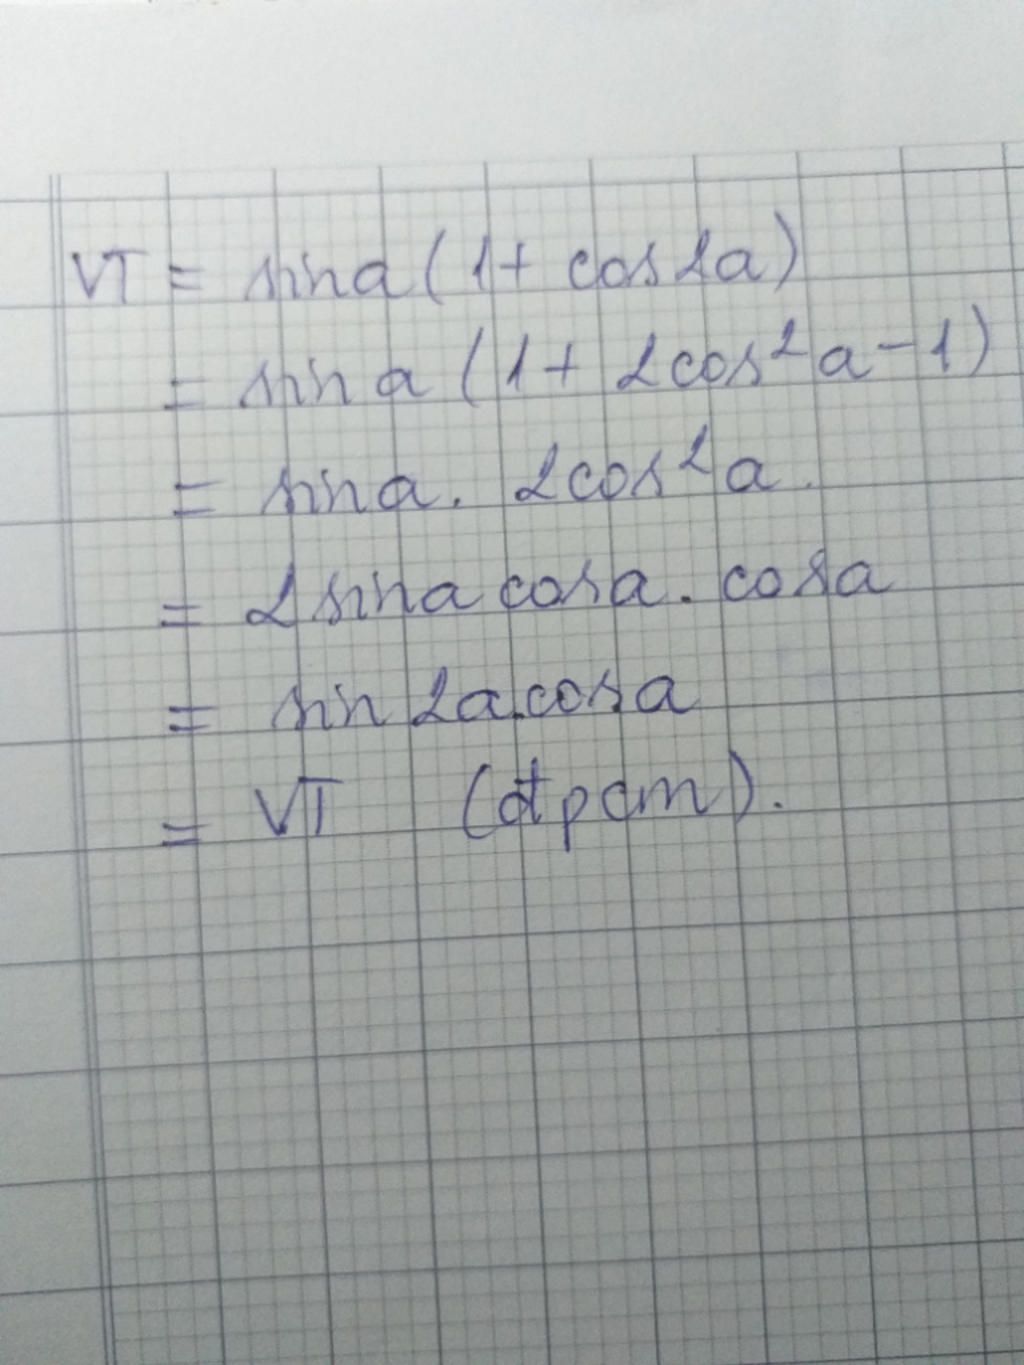 VT = sina(1+ cos2a)
= sina (1+ 2cos²a-1)
= sina. 2cos²a.
= 2sina cosa. cosa
= sin2a.cosa
= VT (đpcm).